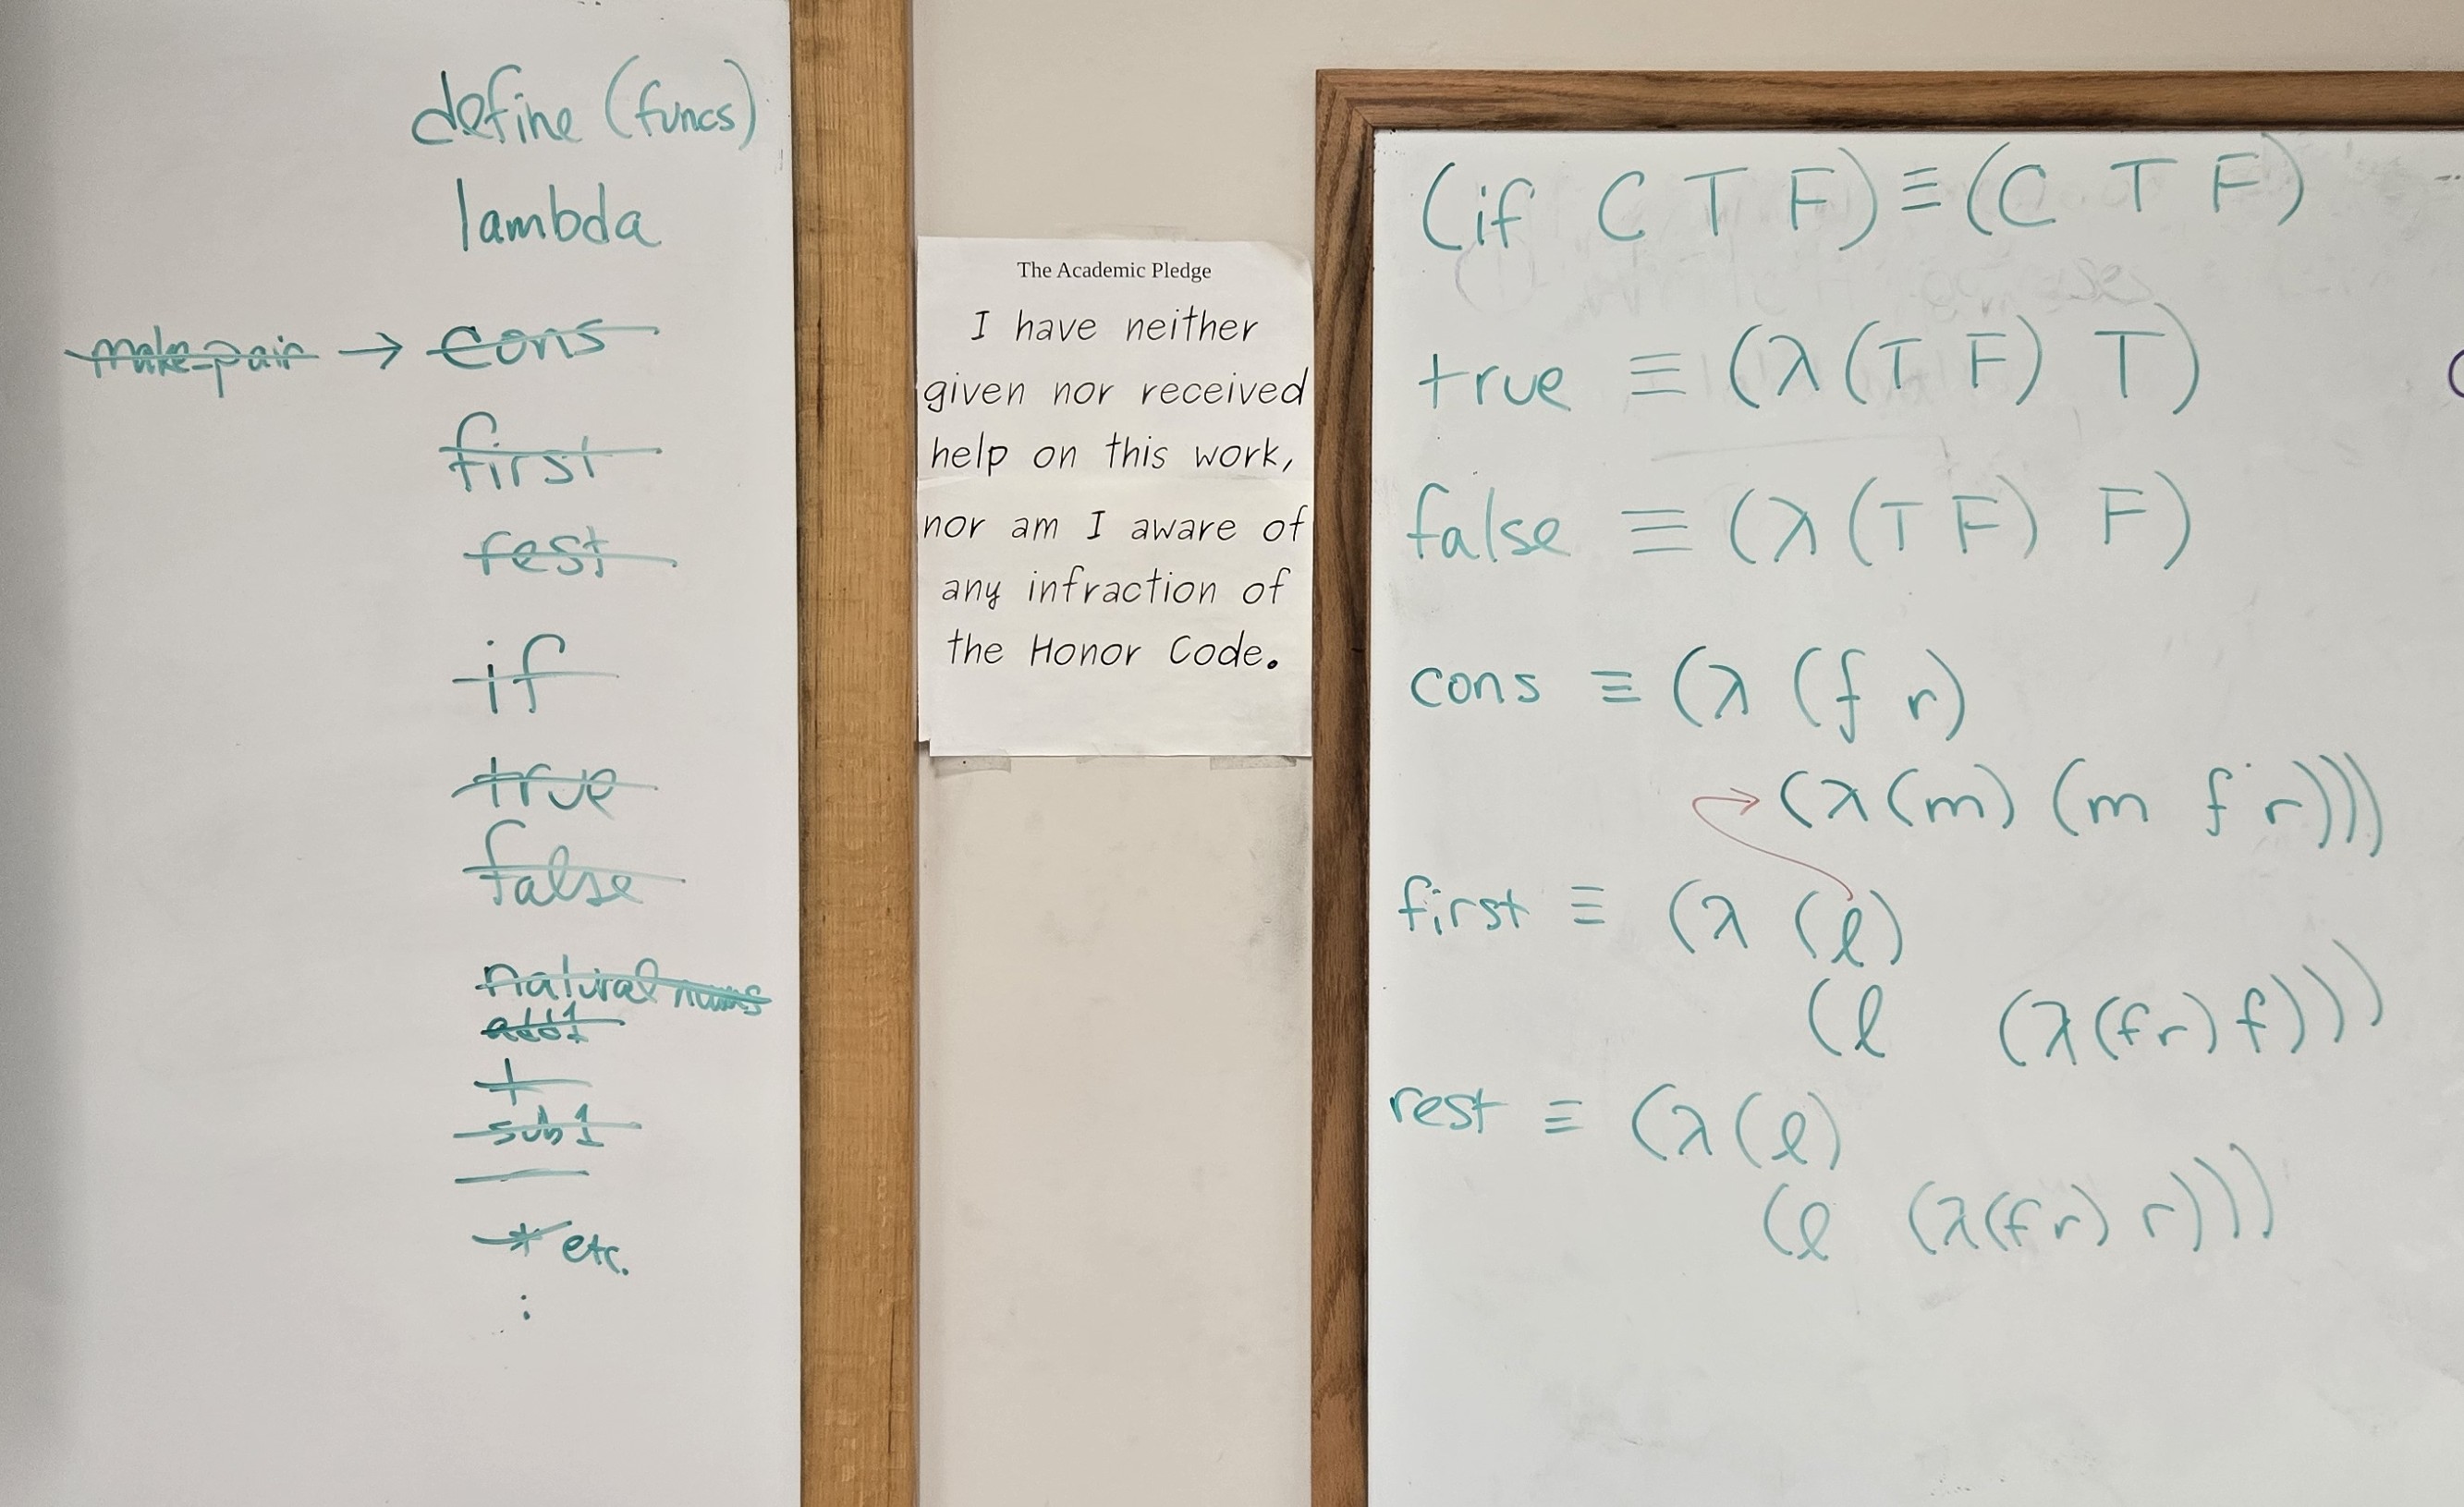 define (funcs)
lambda
make-pair → cons
first
rest
if
true
false
natural nums
add1
+
sub1
-
* etc.
:
The Academic Pledge
I have neither
given nor received
help on this work,
nor am I aware of
any infraction of
the Honor Code.
(if C T F) ≡ (C T F)
true ≡ (λ (T F) T)
false ≡ (λ (T F) F)
cons ≡ (λ (f r)
(λ (m) (m f r)))
first ≡ (λ (l)
(l (λ (f r) f)))
rest ≡ (λ (l)
(l (λ (f r) r)))